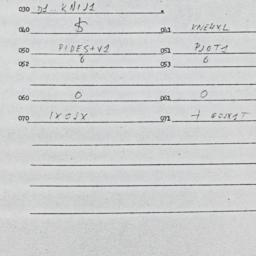 030 D1 KNIJ1
040 $ 041 KNEHXL
050 PIDES+V1 051 PJOT1
052 6 053 6
060 0 061 0
070 IXOJX 071